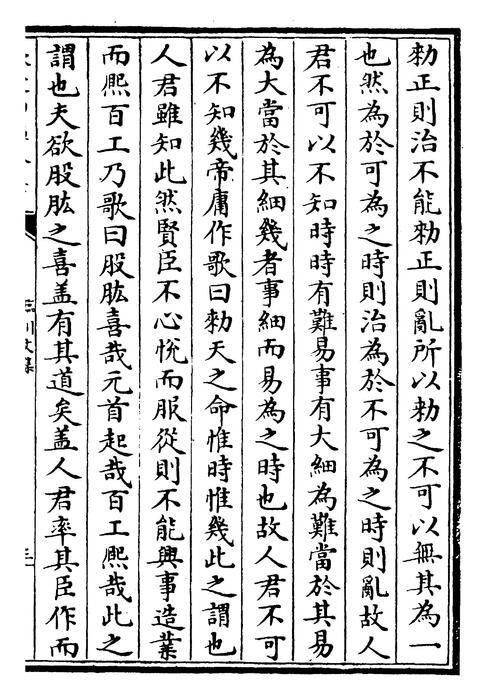 勑正則治不能勑正則亂所以勑之不可以無其為一
也然為於可為之時則治為於不可為之時則亂故人
君不可以不知時時有難易事有大細為難當於其易
為大當於其細幾者事細而易為之時也故人君不可
以不知幾帝庸作歌曰勑天之命惟時惟幾此之謂也
人君雖知此然賢臣不心悅而服從則不能興事造業
而熙百工乃歌曰股肱喜哉元首起哉百工熙哉此之
謂也夫欲股肱之喜盖有其道矣盖人君率其臣作而